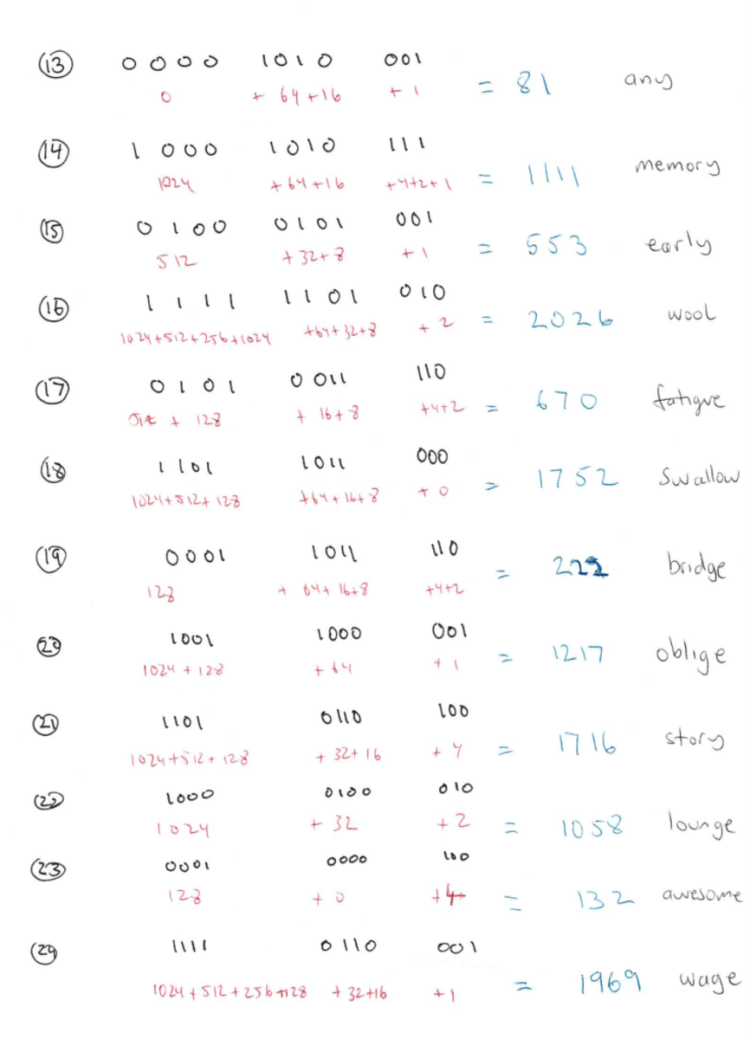 (13) 0000 1010 001
0 + 64+16 + 1 = 81 any
(14) 1000 1010 111
1024 + 64+16 +4+2+1 = 1111 memory
(15) 0100 0101 001
512 + 32+8 + 1 = 553 early
(16) 1111 1101 010
1024+512+256+1024 +64+32+8 + 2 = 2026 wool
(17) 0101 0011 110
+ 128 + 16+8 +4+2 = 670 fatigue
(18) 1101 1011 000
1024+512+128 +64+16+8 + 0 = 1752 swallow
(19) 0001 1011 110
128 + 64+16+8 +4+2 = 222 bridge
(20) 1001 1000 001
1024 + 128 + 64 + 1 = 1217 oblige
(21) 1101 0110 100
1024+512+128 + 32+16 + 4 = 1716 story
(22) 1000 0100 010
1024 + 32 + 2 = 1058 lounge
(23) 0001 0000 100
128 + 0 +4 = 132 awesome
(24) 1111 0110 001
1024+512+256+128 + 32+16 + 1 = 1969 wage